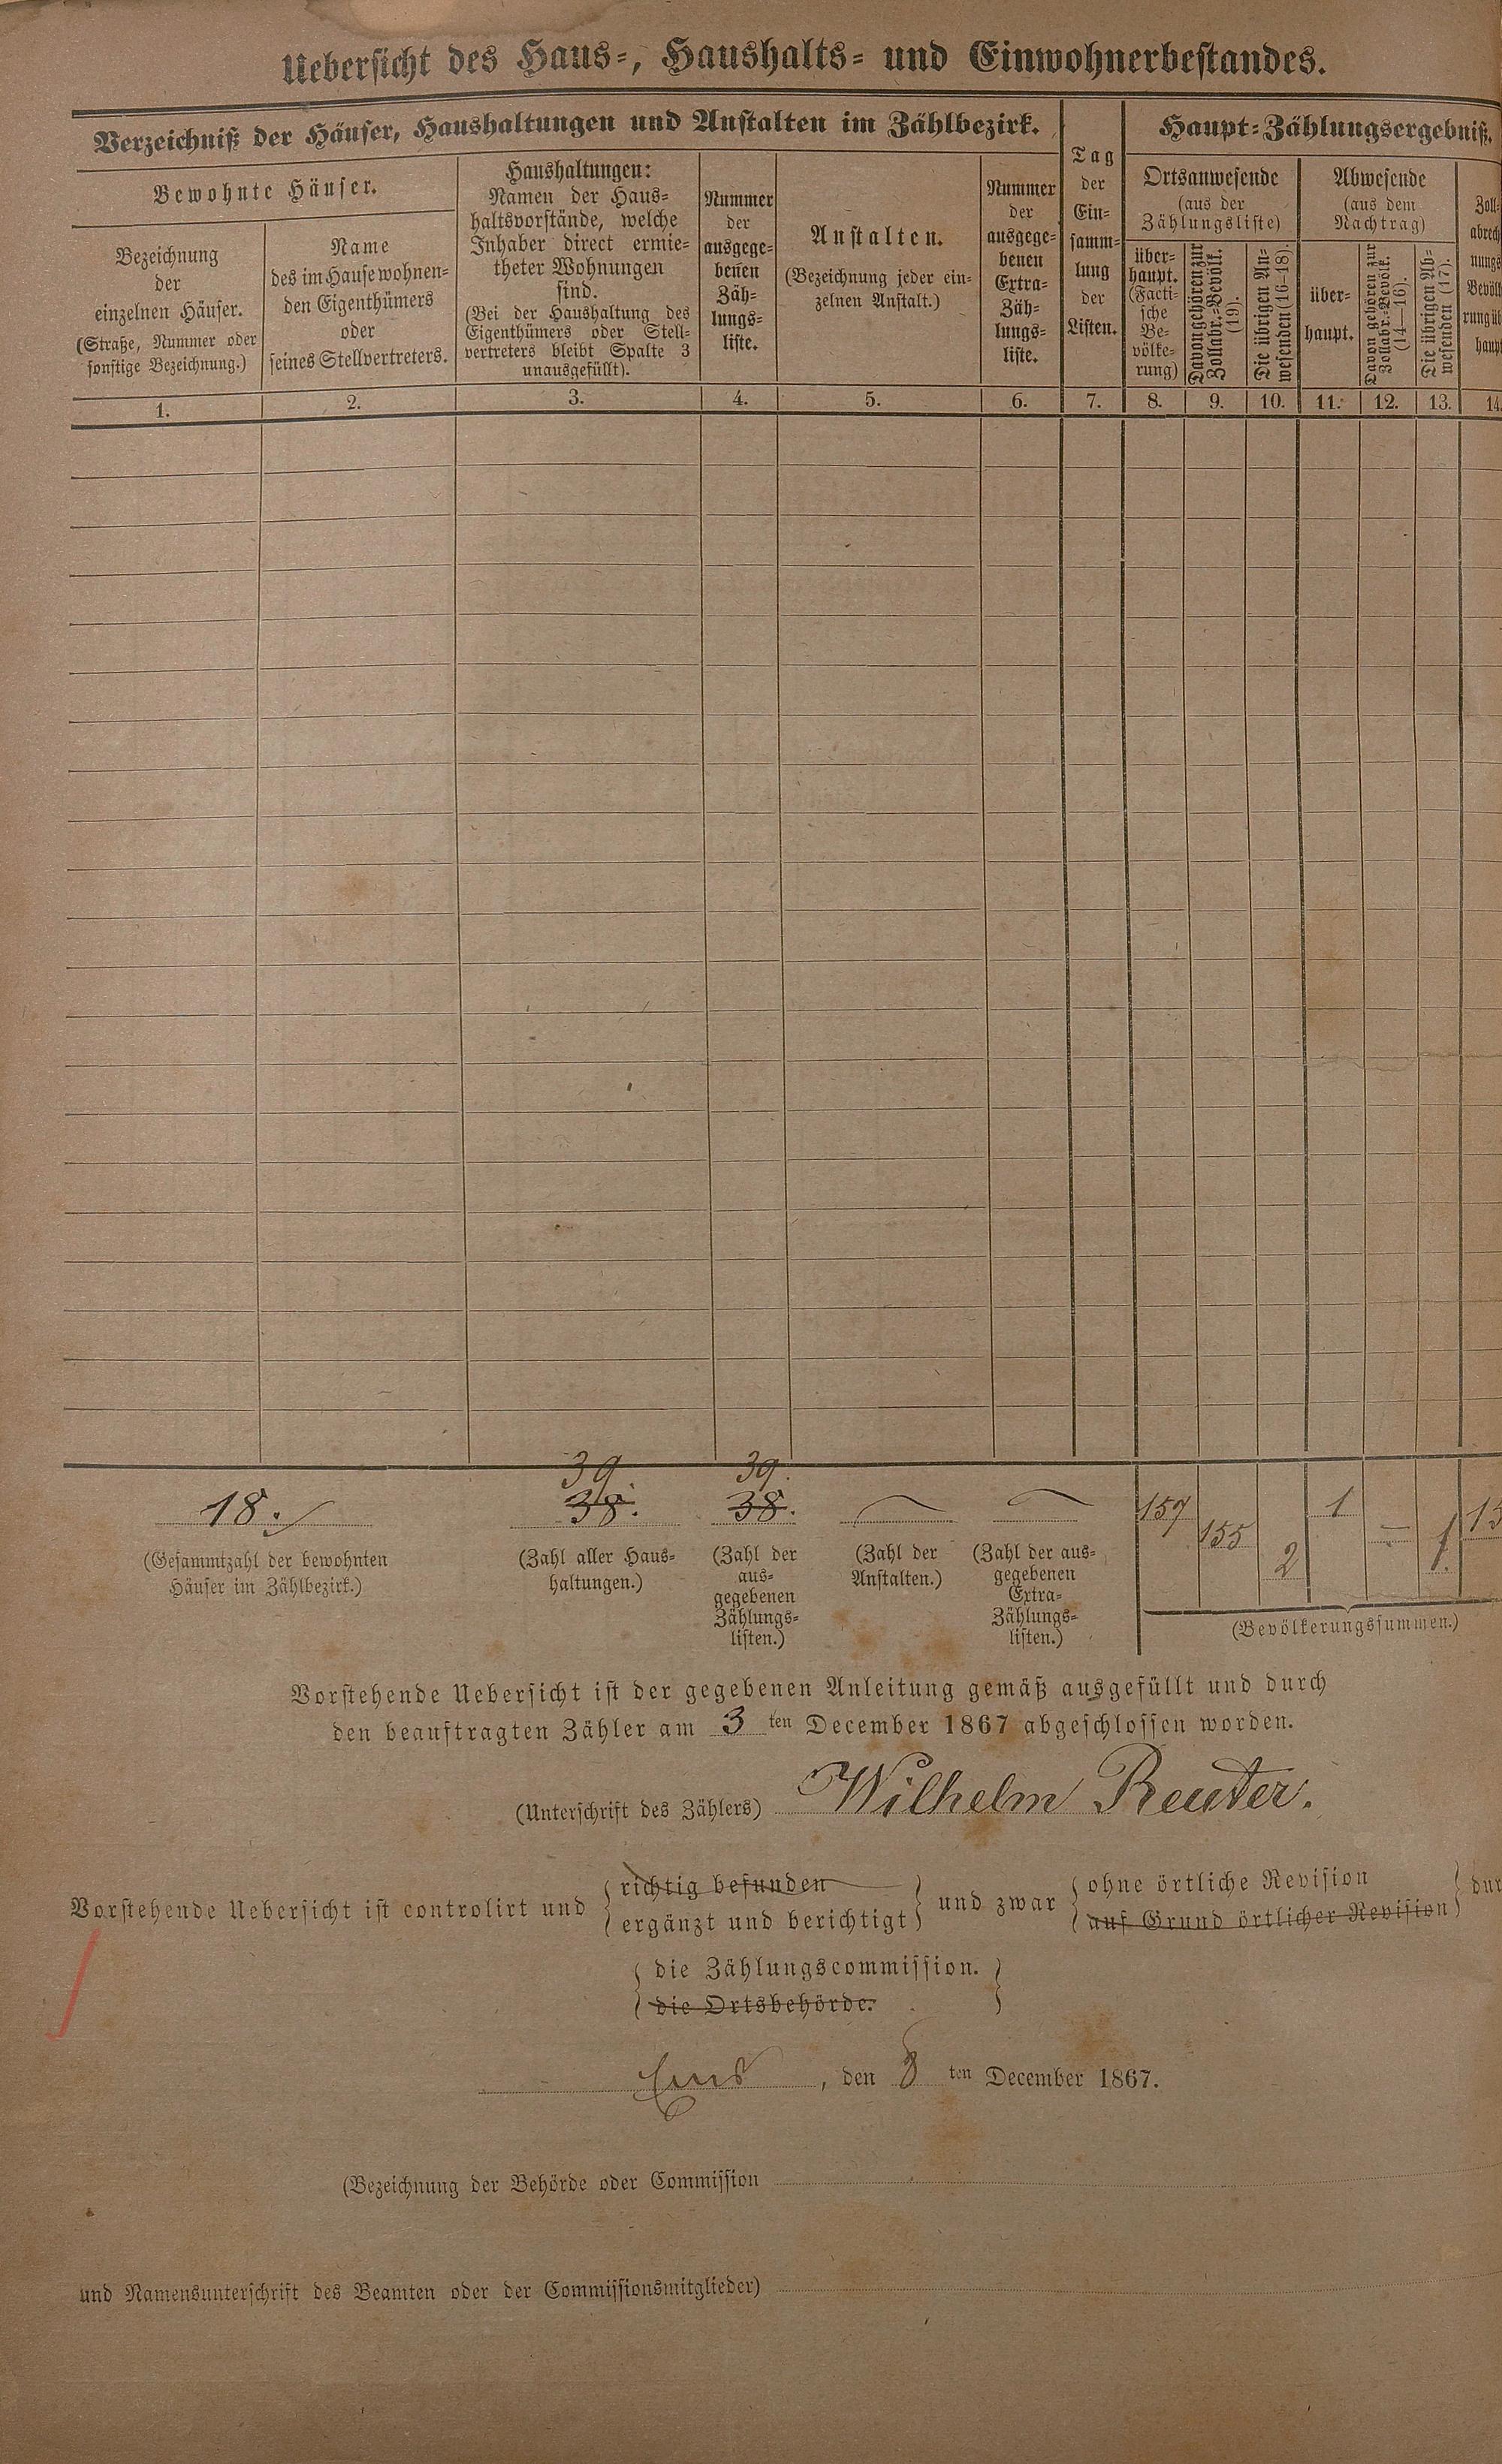 Uebersicht des Haus-, Haushalts- und Einwohnerbestandes.
Verzeichniß der Häuser, Haushaltungen und Anstalten im Zählbezirk.
Bewohnte Häuser.
Bezeichnung
der
einzelnen Häuser.
(Straße, Nummer oder
sonstige Bezeichnung.)
Name
des im Hause wohnen-
den Eigenthümers
oder
seines Stellvertreters.
Haushaltungen:
Namen der Haus-
haltsvorstände, welche
Inhaber direct ermie-
theter Wohnungen
sind.
(Bei der Haushaltung des
Eigenthümers oder Stell-
vertreters bleibt Spalte 3
unausgefüllt).
Nummer
der
ausgege-
benen
Zäh-
lungs-
liste.
Anstalten.
(Bezeichnung jeder ein-
zelnen Anstalt.)
Nummer
der
ausgege-
benen
Extra-
Zäh-
lungs-
liste.
Tag
der
Ein-
samm-
lung
der
Listen.
Haupt-Zählungsergebniß.
Ortsanwesende
(aus der
Zählungsliste)
über-
haupt.
(Facti-
sche
Be-
völke-
rung)
Davon gehören zur
Zollabr.-Bevölk.
(19).
Die übrigen An-
wesenden (16–18).
Abwesende
(aus dem
Nachtrag)
über-
haupt.
Davon gehören zur
Zollabr.-Bevölk.
(14–16).
Die übrigen Ab-
wesenden (17).
Zoll-
abrech
nungs
Bevölk
rung üb
haupt
1. 2. 3. 4. 5. 6. 7. 8. 9. 10. 11. 12. 13. 14.
39. 39.
18. 38. 38. 157 155 2 1 – 1. 15
(Gesammtzahl der bewohnten
Häuser im Zählbezirk.)
(Zahl aller Haus-
haltungen.)
(Zahl der
aus-
gegebenen
Zählungs-
listen.)
(Zahl der
Anstalten.)
(Zahl der aus-
gegebenen
Extra-
Zählungs-
listen.)
(Bevölkerungssummen.)
Vorstehende Uebersicht ist der gegebenen Anleitung gemäß ausgefüllt und durch
den beauftragten Zähler am 3 ten December 1867 abgeschlossen worden.
(Unterschrift des Zählers) Wilhelm Reuter.
richtig befunden
ohne örtliche Revision
Vorstehende Uebersicht ist controlirt und und zwar dur
ergänzt und berichtigt
auf Grund örtlicher Revision
die Zählungscommission.
die Ortsbehörde.
Ems, den 8 ten December 1867.
(Bezeichnung der Behörde oder Commission
und Namensunterschrift des Beamten oder der Commissionsmitglieder)